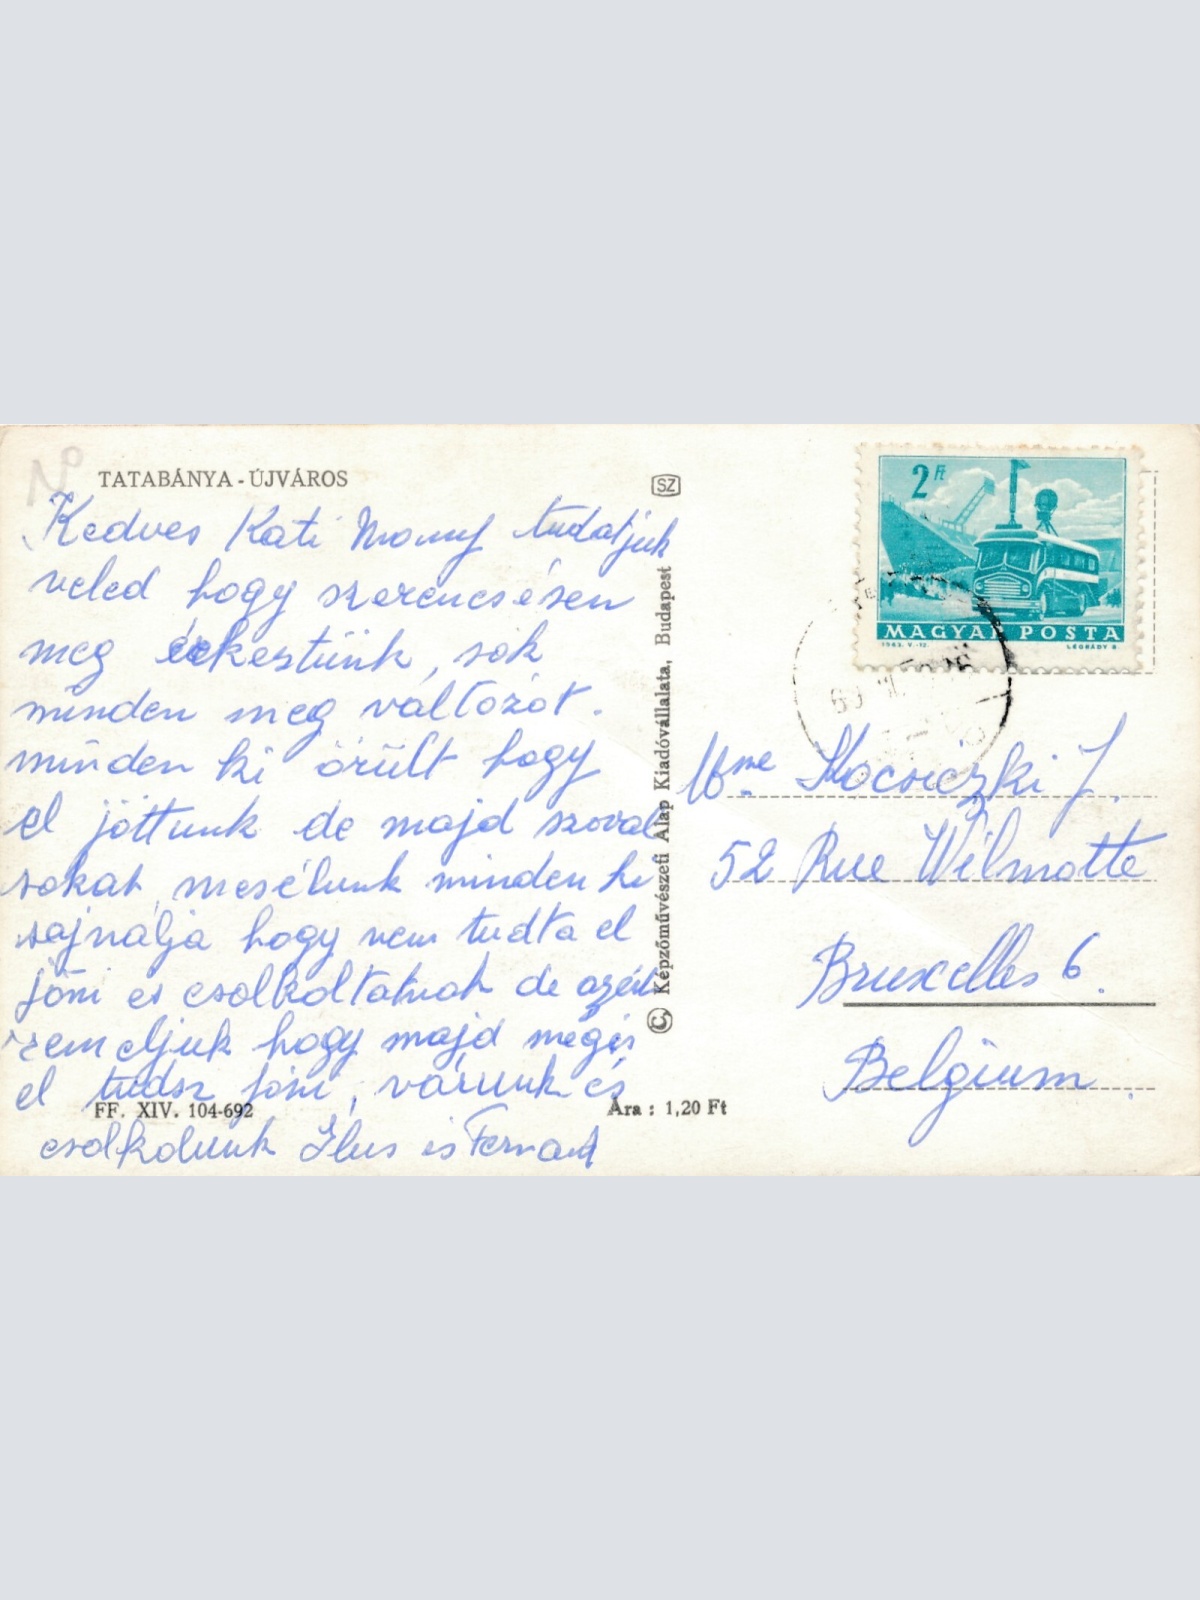 TATABÁNYA - ÚJVÁROS
Kedves Kati tudatjuk
veled hogy szerencsésen
meg érkestünk, sok
minden meg változot.
minden ki örült hogy
el jöttunk de majd szoval
sokat mesélunk minden ki
sajnálja hogy nem tudta el
jöni es csolkoltatnak de azért
remeljuk hogy majd megis
el tudsz jöni, várunk és
csolkolunk Ilus is Fernand
FF. XIV. 104-692
Ára : 1,20 Ft
SZ
© Képzőművészeti Alap Kiadóvállalata, Budapest
2 Ft
MAGYAR POSTA
1963. V-12.
LÉGRÁDY S.
69
Mme Kocsiczki J.
52 Rue Wilmotte
Bruxelles 6.
Belgium.